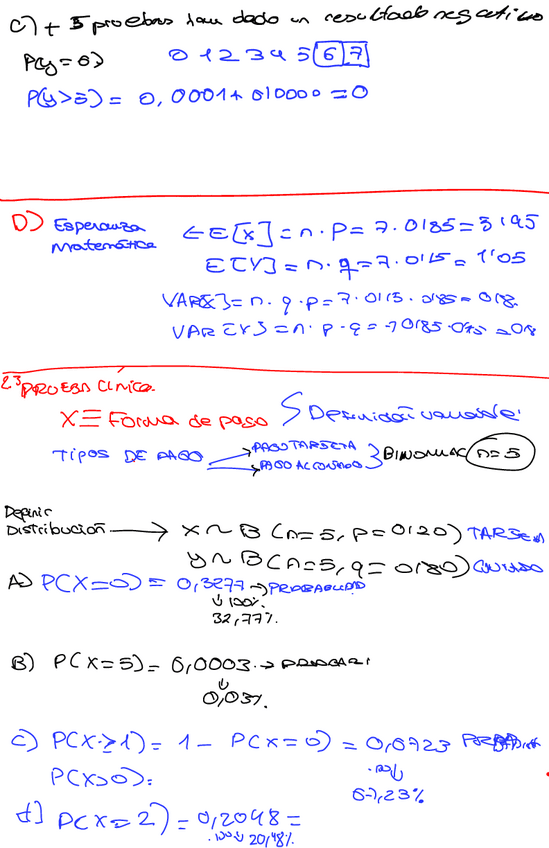 C) + 5 pruebas han dado un resultado negativo
P(y=0) 0 1 2 3 4 5 6 7
P(y>5) = 0,0001 + 0'0000 = 0
D) Esperanza Matemática ← E[X] = n · P = 7 · 0'85 = 5'95
E[Y] = n · q = 7 · 0'15 = 1'05
VAR[X] = n · q · p = 7 · 0'15 · 0'85 = 0'8
VAR[Y] = n · p · q = 7 0'85 · 0'15 = 0'8
2ª PRUEBA CLÍNICA
X ≡ Forma de pago Definición variable
TIPOS DE PAGO → PAGO TARJETA
→ PAGO AL CONTADO
BINOMIAL n=5
Definir
Distribución → X ~ B (n=5, p=0'20) TARJETA
y ~ B (n=5, q=0'80)
A) P(X=0) = 0,3277 → PROBABILIDAD
↓ 100%
32,77%
B) P(X=5) = 0,0003 →
↓
0,03%
C) P(X≥1) = 1 - P(X=0) = 0,6723
P(X>0) = .100 ↓
67,23%
d] P(X=2) = 0,2048 =
.100 ↓ 20,48%